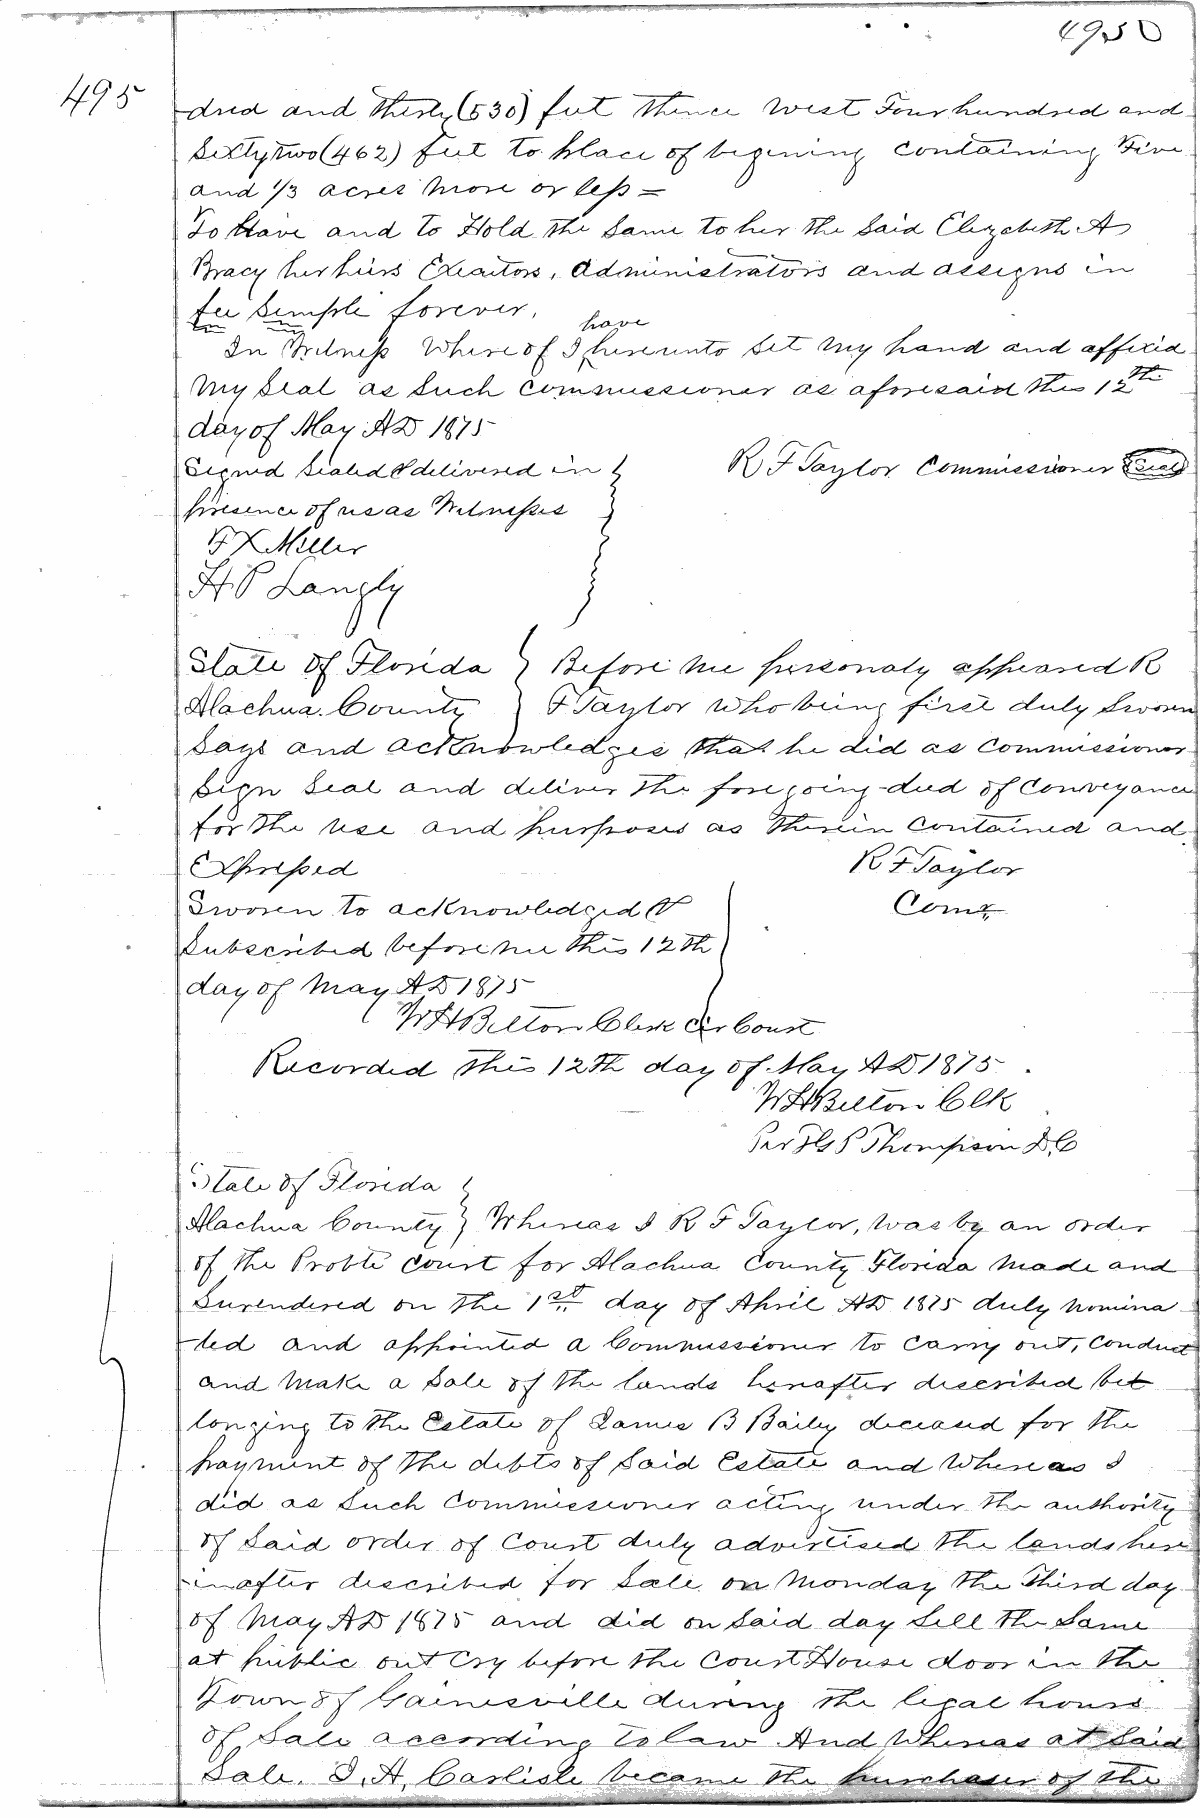 4950
495
dred and Thirty (530) feet Thence West Four hundred and
Sixty two (462) feet to place of begining containing Five
and 1/3 acres more or less =
To Have and to Hold the Same to her the Said Elizabeth A
Bracy her heirs Executors, Administrators and assigns in
fee Simple forever.
In Witness Where of I have hereunto Set my hand and affixed
my Seal as Such Commissioner as aforesaid this 12th
day of May AD 1875
Signed Sealed & delivered in
presence of us as Witnesses
R F Taylor Commissioner Seal
F X Miller
H P Langly
State of Florida
Alachua County
Before me personaly appeared R
F Taylor who being first duly Sworn
Says and acknowledges that he did as Commissioner
Sign Seal and deliver the foregoing deed of Conveyance
for the use and purposes as Therein Contained and
Expressed
R F Taylor
Comr
Sworn to acknowledged &
Subscribed before me this 12th
day of May AD 1875
W H Belton Clerk Cir Court
Recorded this 12th day of May AD 1875
W H Belton Clk
Per P Thompson D.C
State of Florida
Alachua County Whereas I R F Taylor, was by an order
of the Probte Court for Alachua County Florida Made and
Surendered on the 1st day of April AD 1875 duly nomina
-ted and appointed a Commissioner to Carry out, Conduct
and Make a Sale of the lands herafter described be
longing to the Estate of James B Baily deceased for the
payment of the debts of Said Estate and Whereas I
did as Such Commissioner acting under the authority
of Said order of Court duly advertised the lands here
-inafter described for Sale on Monday the Third day
of May AD 1875 and did on Said day Sell the Same
at public out Cry before the Court House door in the
Town of Gainesville during the legal hours
of Sale according to law And Whereas at Said
Sale. I, A, Carlisle became the purchaser of the